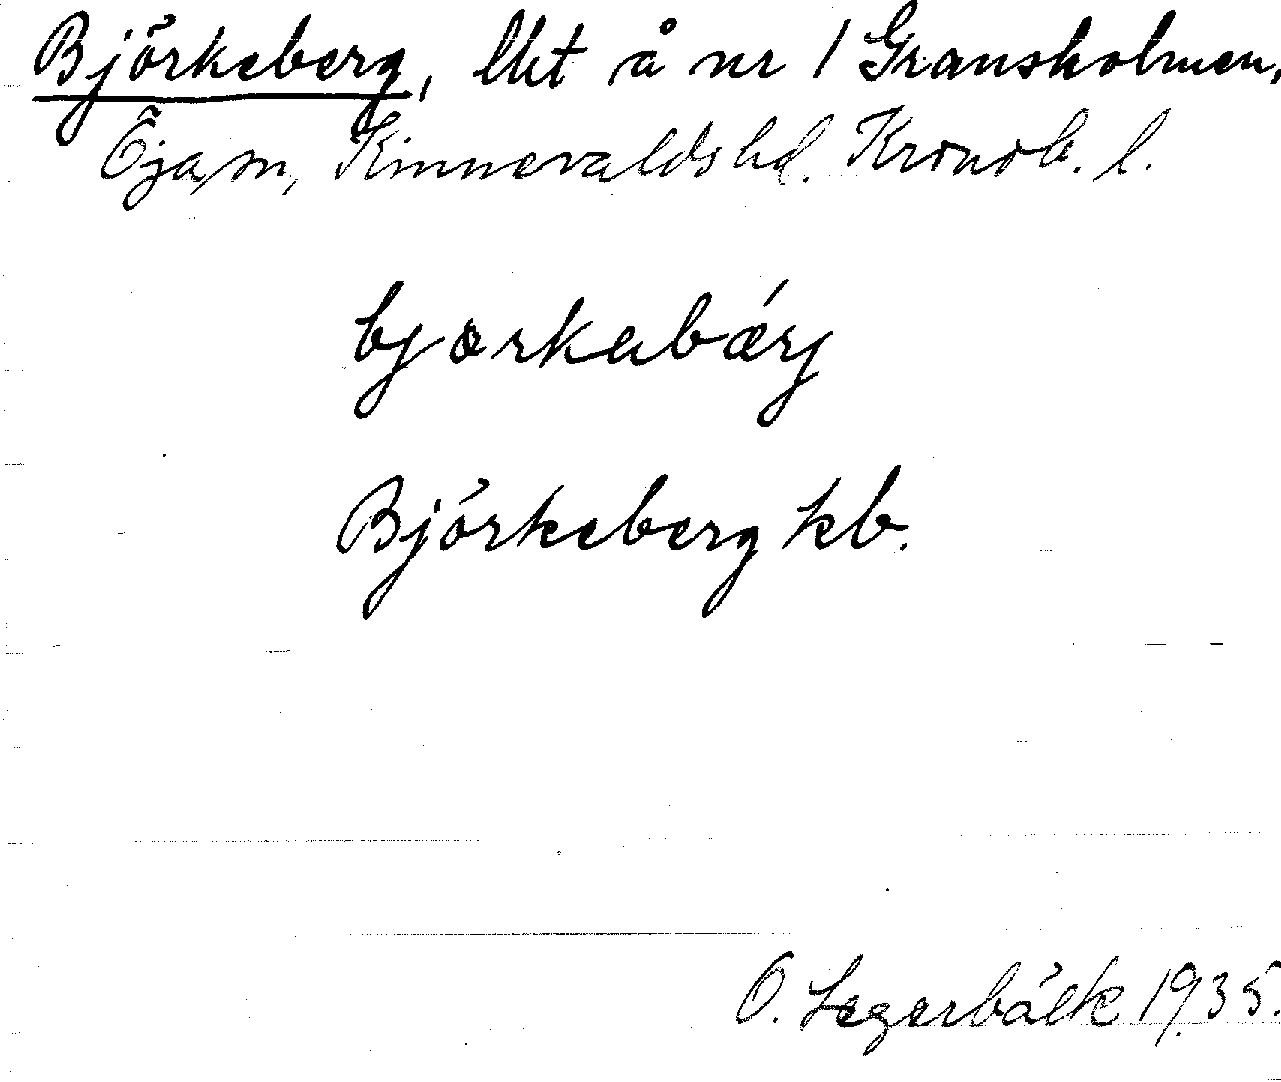 Björkeberg, lht å nr 1 Gransholmen,
Öja sn, Kinnevalds hd. Kronob. l.
bjørkabǽrj
Björkeberg kb.
O. Lagerbäck 1935.